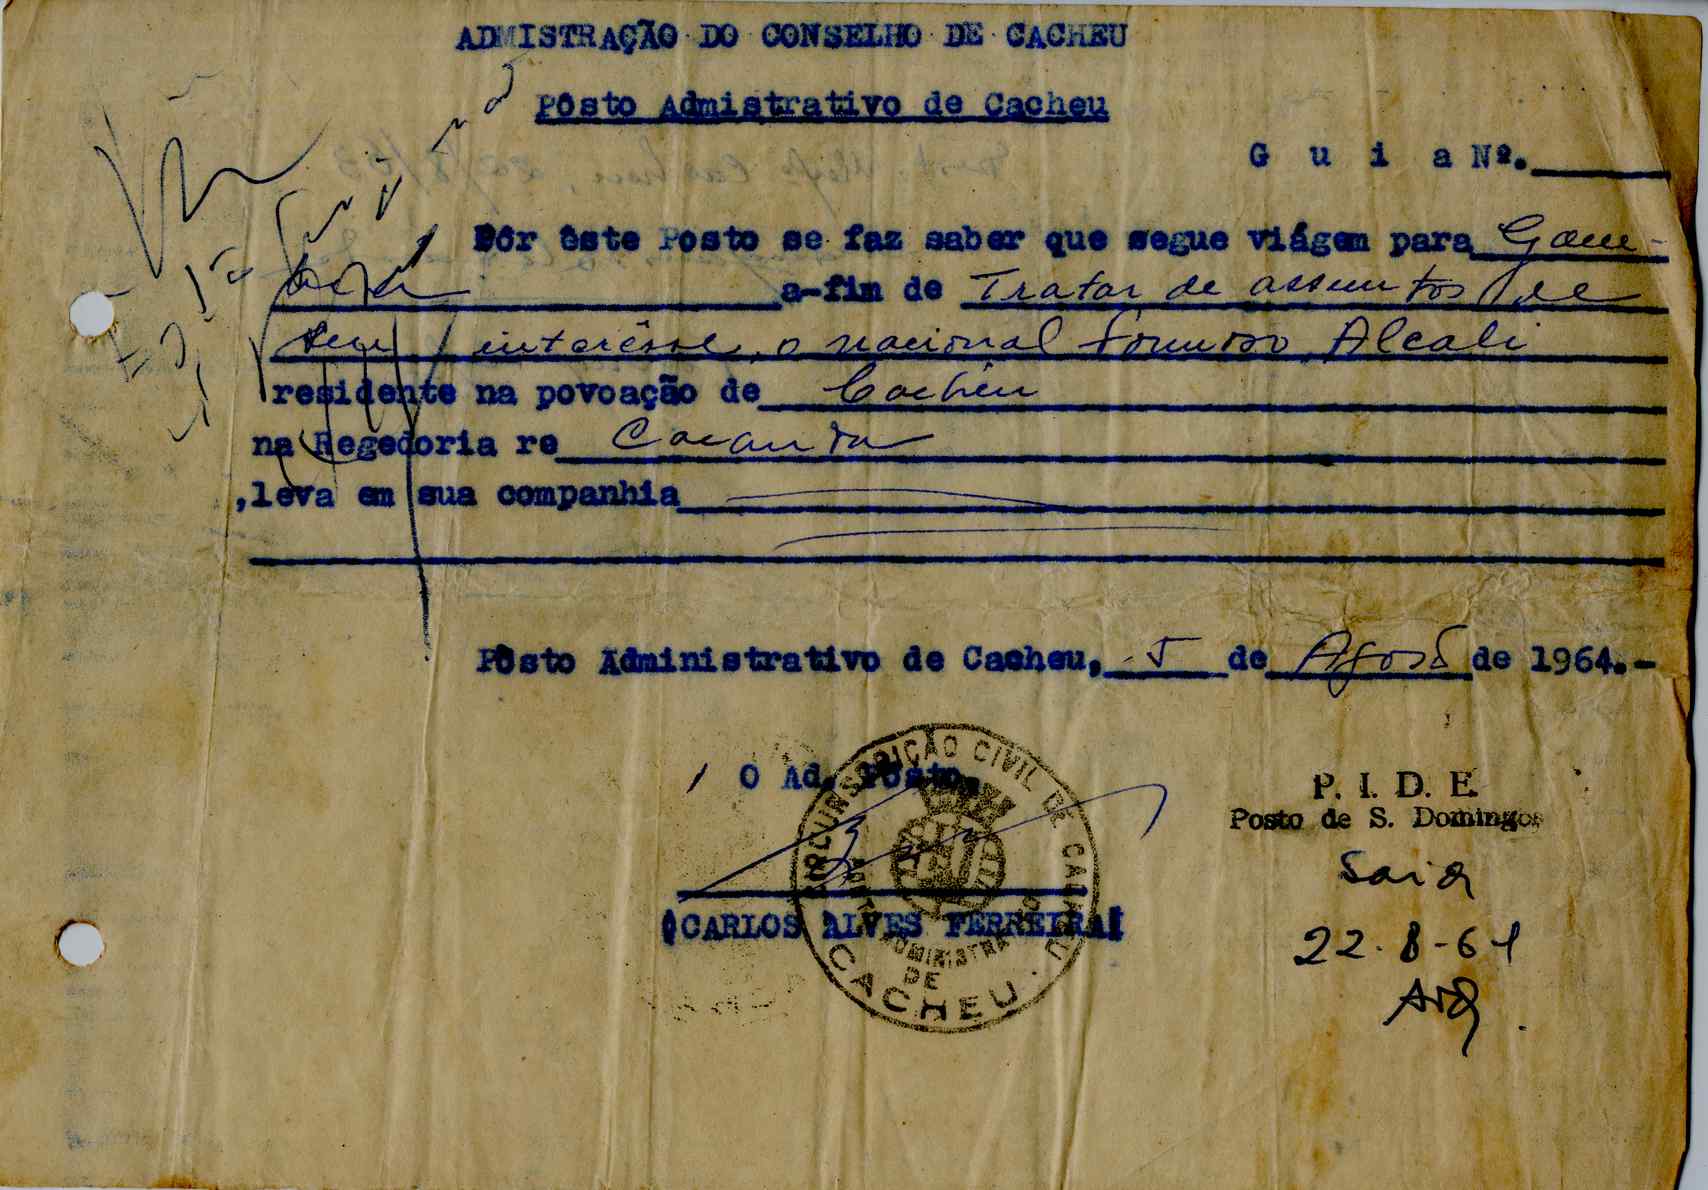 ADMISTRAÇÃO DO CONSELHO DE CACHEU
Pôsto Admistrativo de Cacheu
G u i a Nº.
Pôr êste Posto se faz saber que segue viágem para Gam-
bia a-fim de Tratar de assuntos de
seu interêsse, o nacional Formoso Alcali
residente na povoação de Cacheu
na Regedoria re Cacanda
,leva em sua companhia
Pôsto Administrativo de Cacheu, 5 de Agosto de 1964.-
O Ad. Pôsto,
(CARLOS ALVES FERREIRA)
CIRCUNSCRIÇÃO CIVIL DE CACHEU
ADMINISTRA
DE
CACHEU
P. I. D. E.
Posto de S. Domingos
Saiu
22-8-64